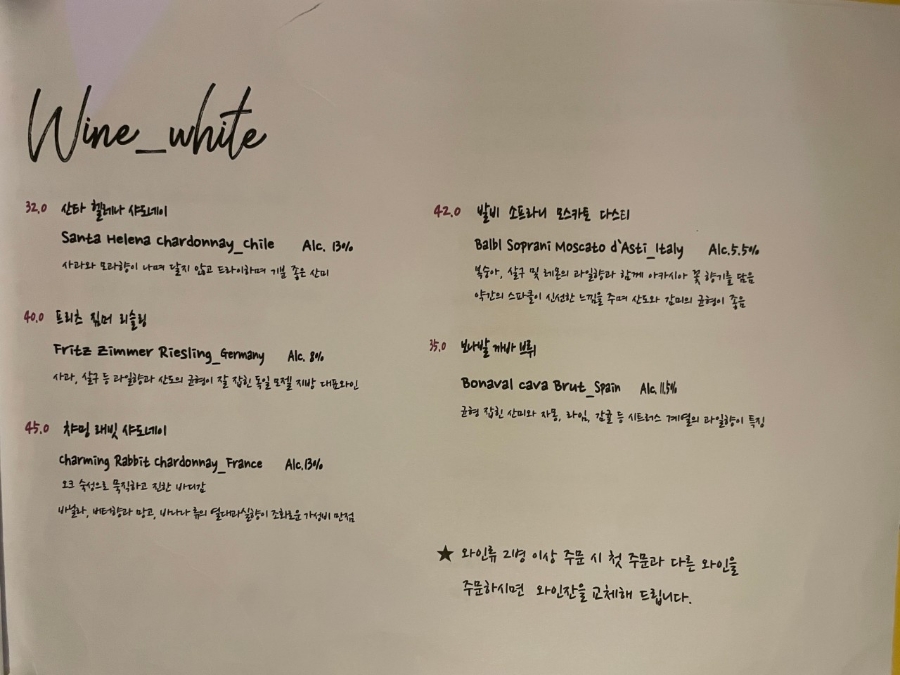 Wine_white
32.0 산타 헬레나 샤도네이
Santa Helena Chardonnay_Chile Alc. 13%
사과와 모과향이 나며 달지 않고 드라이하며 기분 좋은 산미
40.0 프리츠 짐머 리슬링
Fritz Zimmer Riesling_Germany Alc. 8%
사과, 살구 등 과일향과 산도의 균형이 잘 잡힌 독일 모젤 지방 대표와인
45.0 챠밍 래빗 샤도네이
Charming Rabbit Chardonnay_France Alc.13%
오크 숙성으로 묵직하고 진한 바디감
바닐라, 버터향과 망고, 바나나 류의 열대과실향이 조화로운 가성비 만점
42.0 발비 소프라니 모스카토 다스티
Balbi Soprani Moscato d`Asti_Italy Alc.5.5%
복숭아, 살구 및 레몬의 과일향과 함께 아카시아 꽃 향기를 담음
약간의 스파클이 신선한 느낌을 주며 산도와 감미의 균형이 좋음
35.0 보나발 까바 브뤼
Bonaval Cava Brut_Spain Alc.11.5%
균형 잡힌 산미와 자몽, 라임, 감귤 등 시트러스 계열의 과일향이 특징
★ 와인류 2병 이상 주문 시 첫 주문과 다른 와인을
주문하시면 와인잔을 교체해 드립니다.